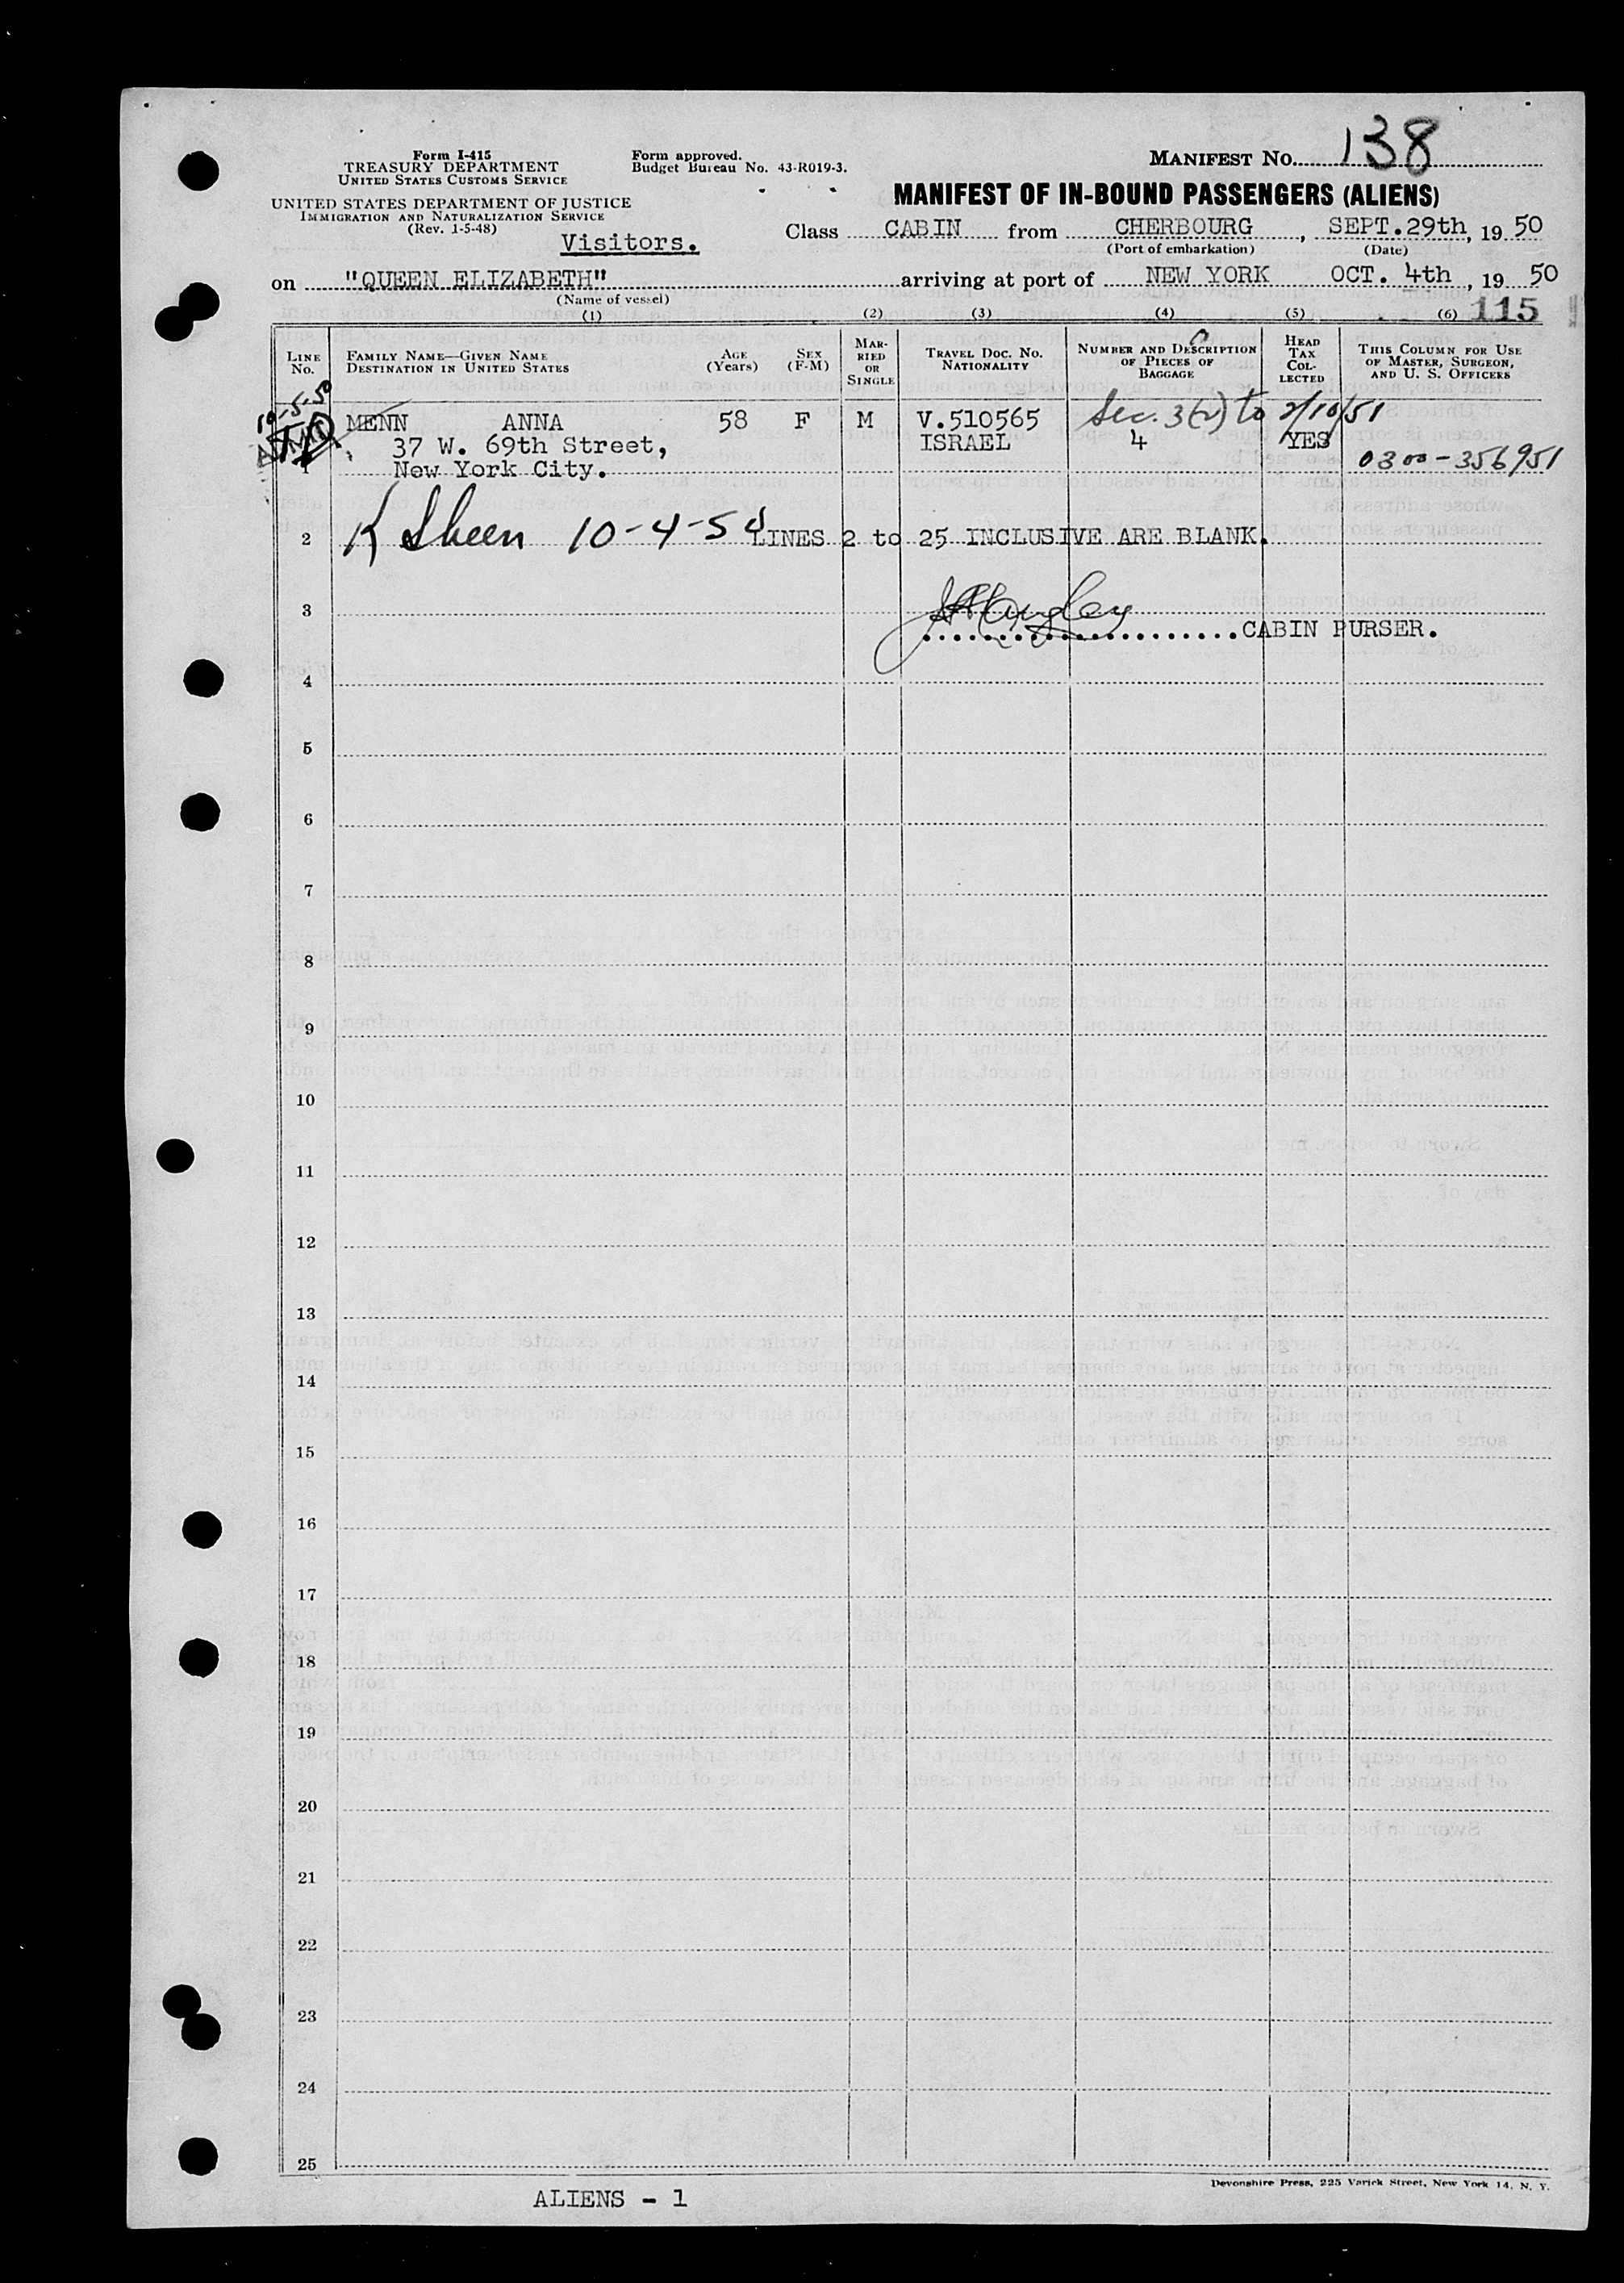 Form I-415
TREASURY DEPARTMENT
UNITED STATES CUSTOMS SERVICE
UNITED STATES DEPARTMENT OF JUSTICE
IMMIGRATION AND NATURALIZATION SERVICE
(Rev. 1-5-48)
Form approved.
Budget Bureau No. 43-R019-3.
MANIFEST No. 138
MANIFEST OF IN-BOUND PASSENGERS (ALIENS)
Visitors.
Class CABIN from CHERBOURG, SEPT.29th, 19 50
(Port of embarkation) (Date)
on "QUEEN ELIZABETH" arriving at port of NEW YORK OCT. 4th, 19 50
(Name of vessel)
115
(1) (2) (3) (4) (5) (6)
LINE No.
FAMILY NAME—GIVEN NAME
DESTINATION IN UNITED STATES
AGE (Years)
SEX (F-M)
MARRIED OR SINGLE
TRAVEL DOC. NO.
NATIONALITY
NUMBER AND DESCRIPTION OF PIECES OF BAGGAGE
HEAD TAX COLLECTED
THIS COLUMN FOR USE OF MASTER, SURGEON, AND U. S. OFFICERS
10-5-50
MENN ANNA 58 F M V.510565 Sec. 3(2) to 2/10/51
37 W. 69th Street, ISRAEL 4 YES
1 New York City. 0300-356951
2 K Sheen 10-4-50 LINES 2 to 25 INCLUSIVE ARE BLANK.
3
CABIN PURSER.
4
5
6
7
8
9
10
11
12
13
14
15
16
17
18
19
20
21
22
23
24
25
Devonshire Press, 225 Varick Street, New York 14, N. Y.
ALIENS - 1